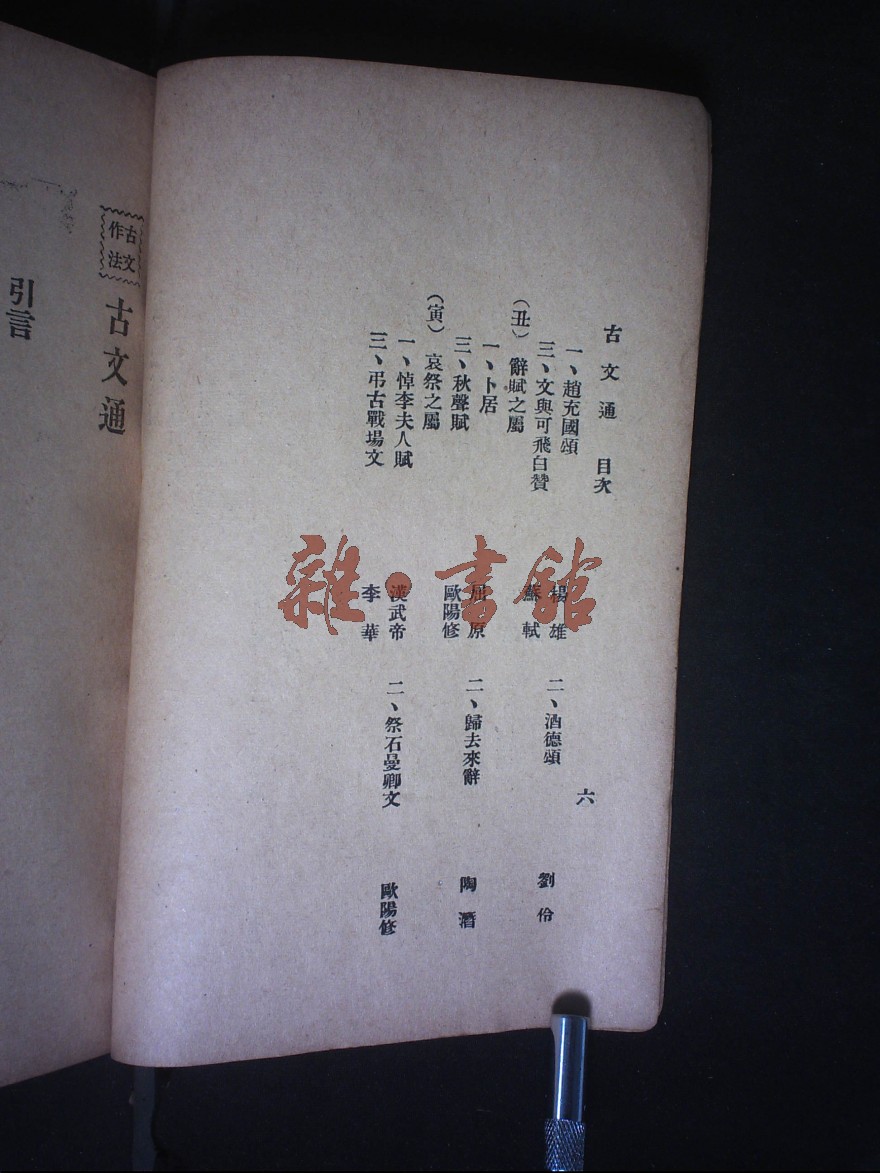 古文通 目次 六
一、趙充國頌 楊雄 二、酒德頌 劉伶
三、文與可飛白贊 蘇軾
（丑） 辭賦之屬
一、卜居 屈原 二、歸去來辭 陶潛
三、秋聲賦 歐陽修
（寅） 哀祭之屬
一、悼李夫人賦 漢武帝 二、祭石曼卿文 歐陽修
三、弔古戰場文 李華
古文作法 古文通
引言
雜·書館